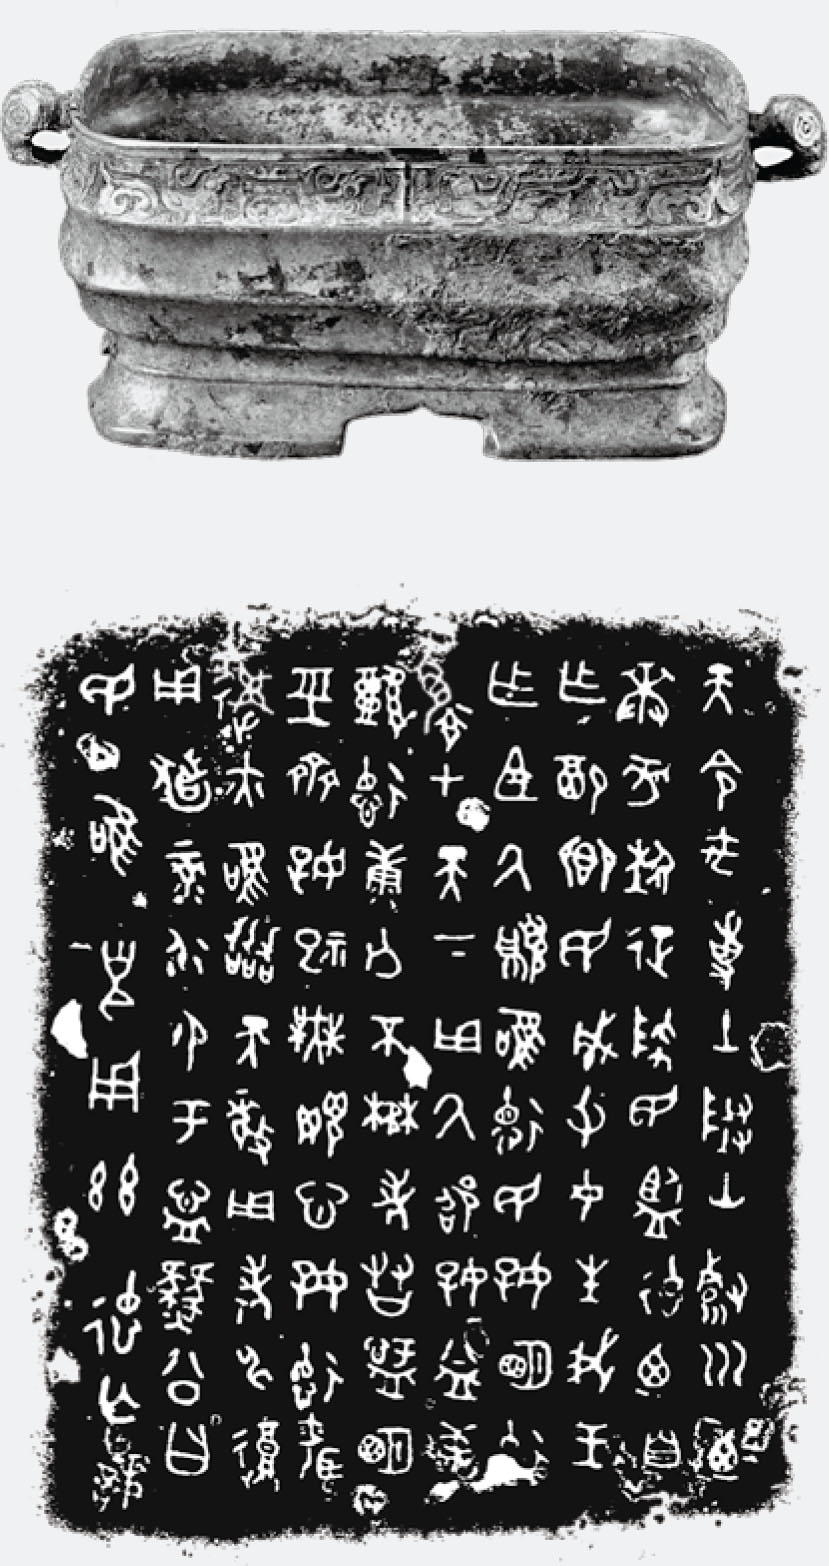 天令禹尃土隓山濬川迺
差方埶征降民監德迺自
乍配鄉民成父母生我王
乍臣氒沬唯德民好明德
才天下用氒邵好益
懿德康亡不懋孝友明
齊好祀無心好德婚
媾亦唯協天釐用考神復
用祓永于公曰
民唯克用茲德亡誨